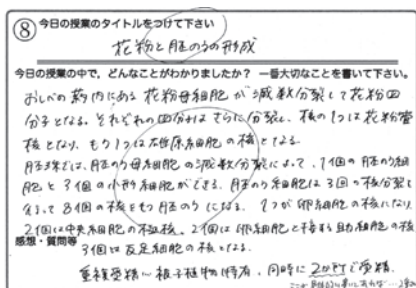 ⑧ 今日の授業のタイトルをつけて下さい
花粉と胚のうの形成
今日の授業の中で、どんなことがわかりましたか? 一番大切なことを書いて下さい。
おしべの葯内にある花粉母細胞が減数分裂して花粉四
分子となる。それぞれの四分子はさらに分裂し、核の1つは花粉管
核となり、もう1つは雄原細胞の核となる。
胚珠では、胚のう母細胞の減数分裂によって、1個の胚のう細
胞と3個の小さい細胞ができる。胚のう細胞は3回の核分裂を
8個の核をもつ胚のうになる。1つが卵細胞の核になり、
2個は中央細胞の極核。2個は卵細胞と接する助細胞の核
感想・質問等
3個は反足細胞の核となる。
重複受精〜被子植物特有、同時に2か所で受精